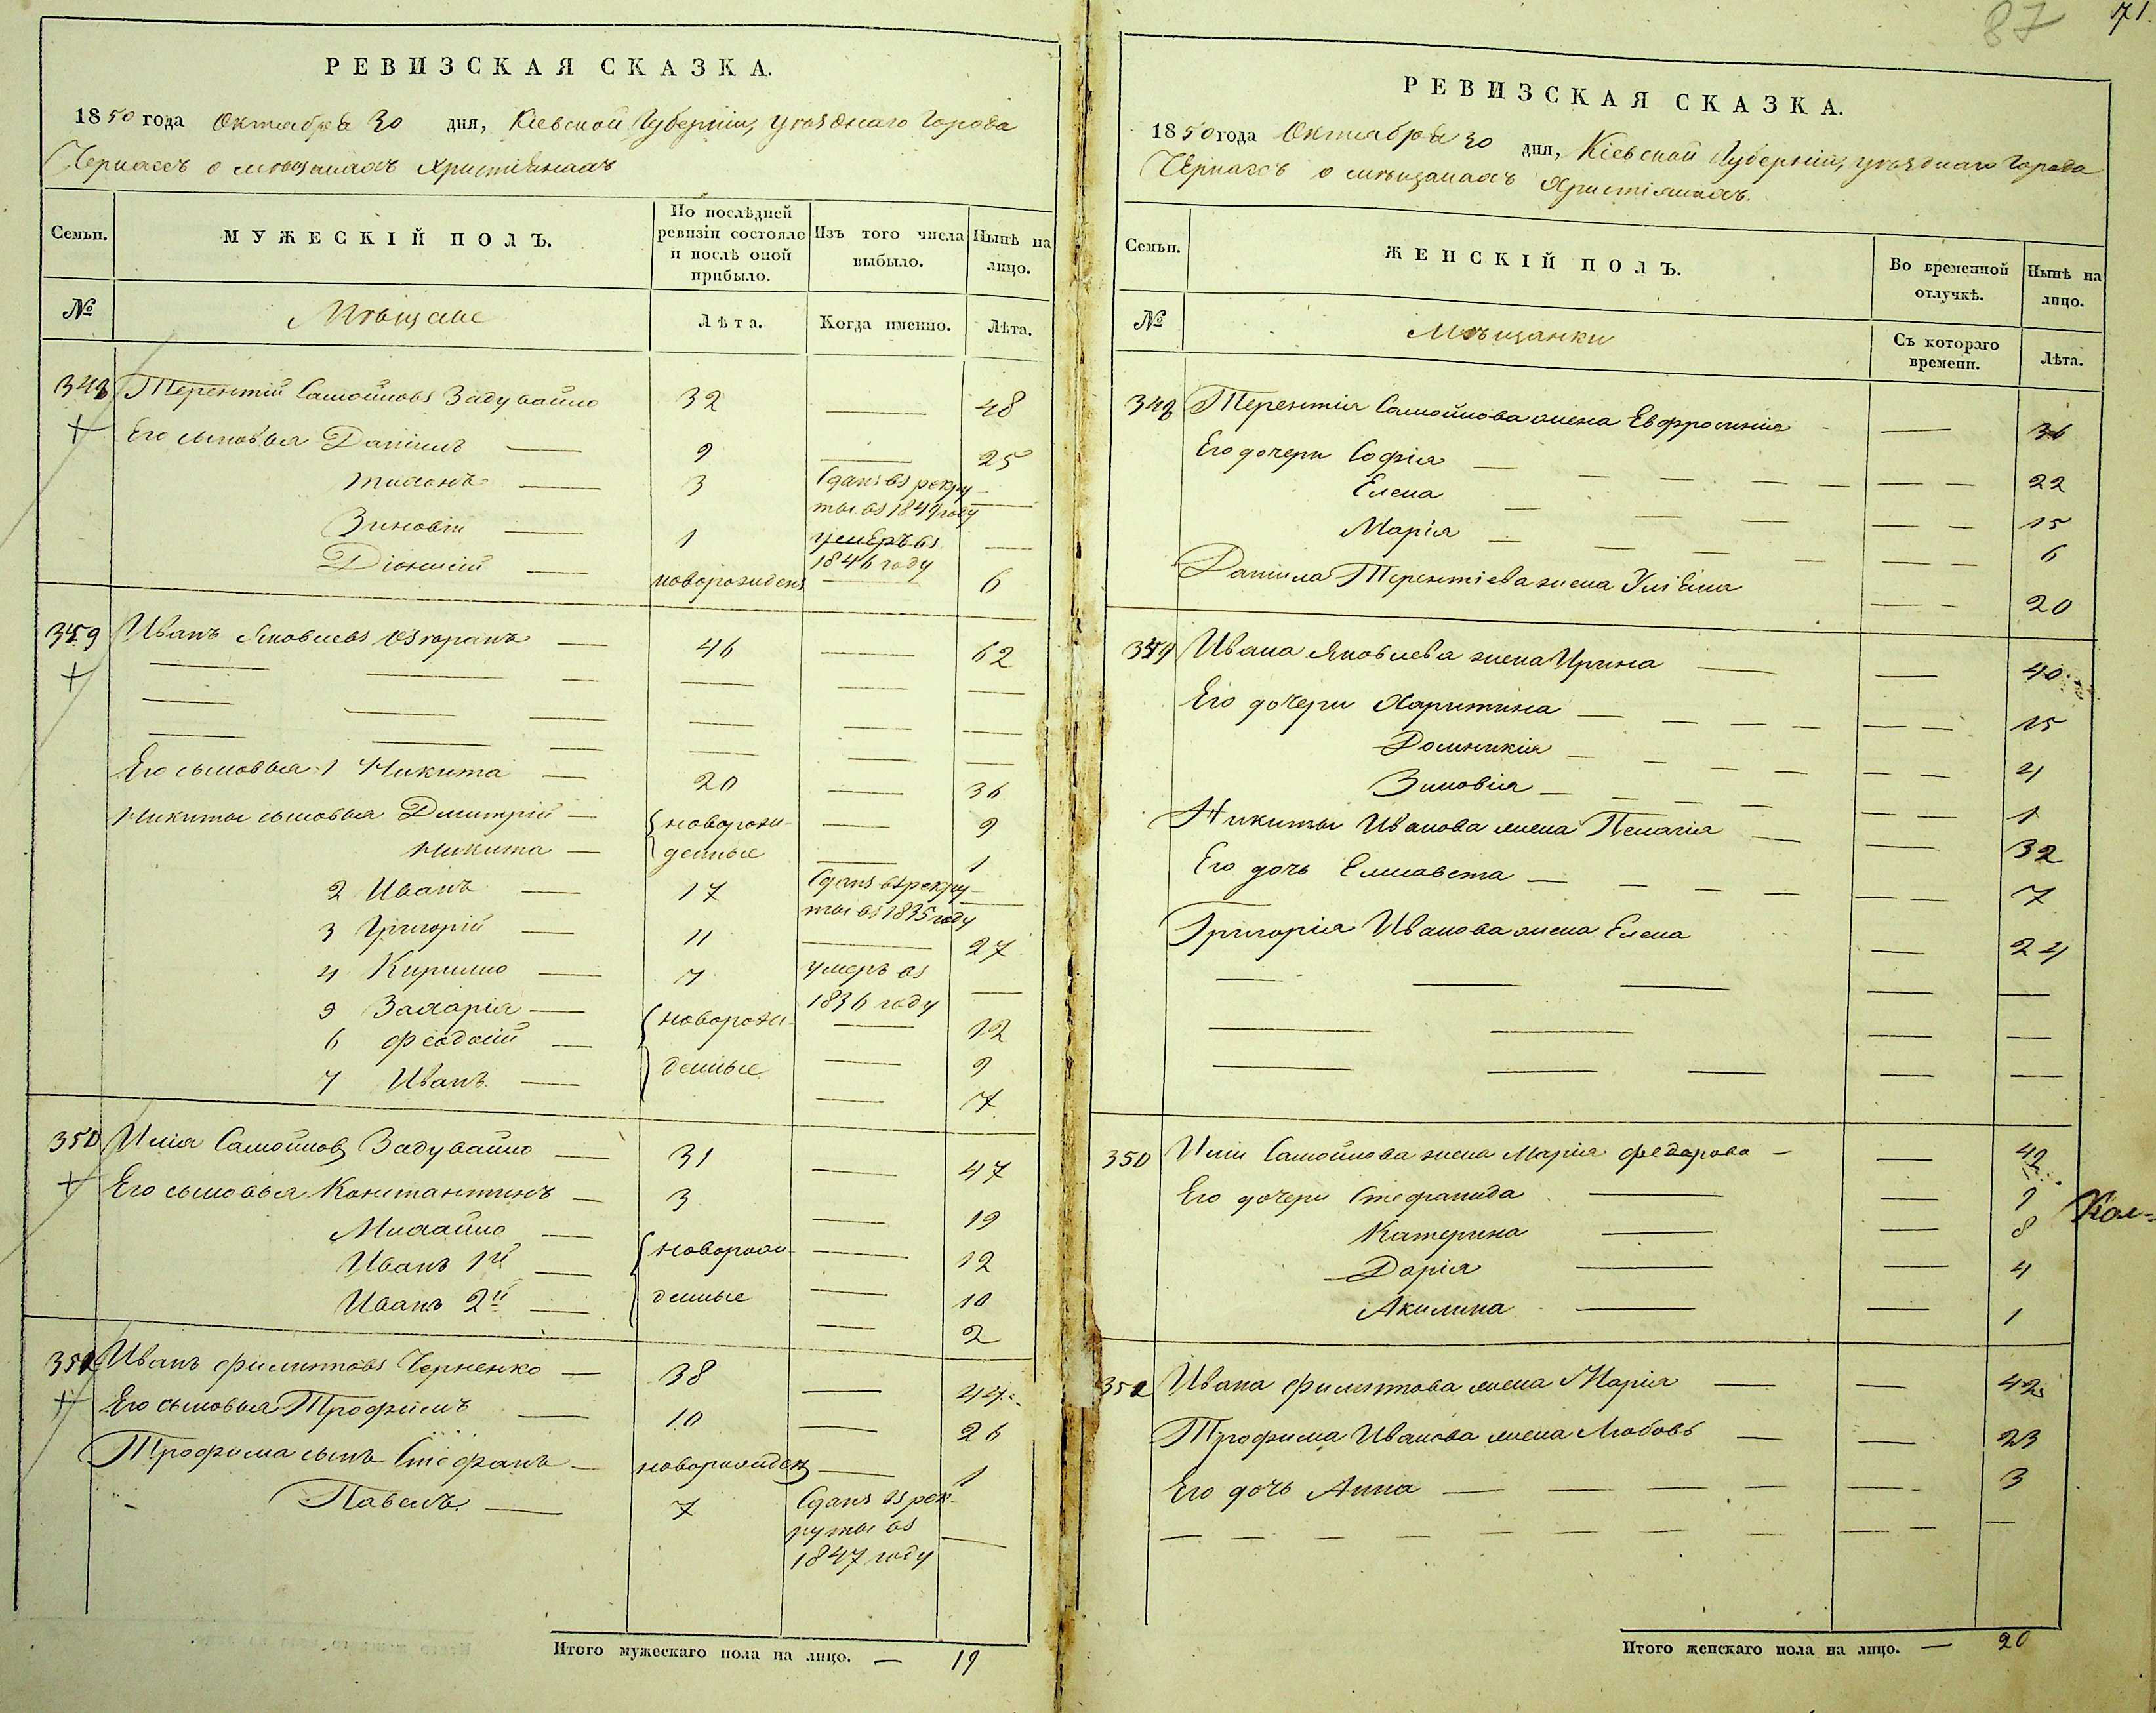 87 71
РЕВИЗСКАЯ СКАЗКА.
1850 года Октября 30 дня, Кіевской Губерніи, уѣзднаго Города
Черкасъ о мѣщанахъ христіянахъ
Семьи. МУЖЕСКІЙ ПОЛЪ. По послѣдней ревизіи состояло и послѣ оной прибыло. Изъ того числа выбыло. Нынѣ на лицо.
№ Мѣщане Лѣта. Когда именно. Лѣта.
348 Терентій Самойловъ Задувайло 32 — 48
Его сыновья Даніилъ — 9 — 25
Тихонъ — 3 Сданъ въ рекру-
ты въ 1849 году —
Зиновій — 1 умеръ въ
1846 году —
Діонисій — новорожденъ — 6
349 Иванъ Яковлевъ — 46 — 62
Его сыновья 1 Никита — 20 — 36
Никиты сыновья Дмитрій — новорож- — 9
Никита — денные — 1
2 Иванъ — 17 Сданъ въ рекру-
ты въ 1835 году —
3 Григорій — 11 — 27
4 Кирилло — 7 умеръ въ
1836 году —
5 Захарія — новорож- — 12
6 Феодосій — денные — 9
7 Иванъ — 7
350 Илія Самойловъ Задувайло — 31 — 47
Его сыновья Константинъ — 3 — 19
Михайло — новорож- — 12
Иванъ 1й — денные — 10
Иванъ 2й — 2
351 Иванъ Филиповъ Черненко — 38 — 44
Его сыновья Трофимъ — 10 — 26
Трофима сынъ Стефанъ — новорожденъ — 1
Павелъ — 7 Сданъ въ рек-
руты въ —
1847 году
Итого мужескаго пола на лицо. — 19
РЕВИЗСКАЯ СКАЗКА.
1850 года Октября 30 дня, Кіевской Губерніи, уѣзднаго Города
Черкасъ о мѣщанахъ Христіянахъ.
Семьи. ЖЕНСКІЙ ПОЛЪ. Во временной отлучкѣ. Нынѣ на лицо.
№ Мѣщанки Съ котораго времени. Лѣта.
348 Терентія Самойлова жена Евфросинія — 36
Его дочери Софія — 22
Елена — 15
Марія — 6
Даніила Терентіева жена Уліяна — 20
349 Ивана Яковлева жена Ирина — 40
Его дочери Харитина — 15
Домникія — 4
Зиновія — 1
Никиты Иванова жена Пелагія — 32
Его дочь Елисавета — 7
Григорія Иванова жена Елена — 24
350 Иліи Самойлова жена Марія Федорова — 42
Его дочери Стефанида — 9
Катерина — 8
Дарія — 4
Акилина — 1
351 Ивана Филипова жена Марія — 42
Трофима Иванова жена Любовь — 23
Его дочь Анна — 3
Итого женскаго пола на лицо. — 20